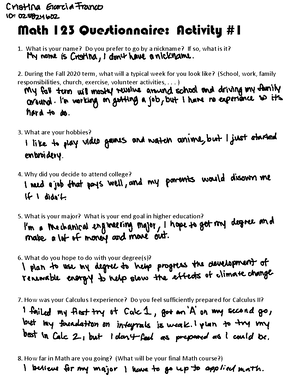 Cristina Garcia Franco
Math 123 Questionnaire: Activity #1
1. What is your name? Do you prefer to go by a nickname? If so, what is it?
My name is Cristina, I don't have a nickname.
2. During the Fall 2020 term, what will a typical week for you look like? (School, work, family
responsibilities, church, exercise, volunteer activities, . . . .)
My fall term will mostly revolve around school and driving my family
around. I'm working on getting a job, but I have no experience so it's
hard to do.
3. What are your hobbies?
I like to play video games and watch anime, but I just started
embroidery.
4. Why did you decide to attend college?
I need a job that pays well, and my parents would disown me
if I didn't.
5. What is your major? What is your end goal in higher education?
I'm a mechanical engineering major, I hope to get my degree and
make a lot of money and move out.
6. What do you hope to do with your degree(s)?
I plan to use my degree to help progress the development of
renewable energy to help slow the effects of climate change
7. How was your Calculus I experience? Do you feel sufficiently prepared for Calculus II?
I failed my first try of Calc 1, got an "A" on my second go,
but my foundation on integrals is weak. I plan to try my
best in Calc 2, but I don't feel as prepared as I could be.
8. How far in Math are you going? (What will be your final Math course?)
I believe for my major I have to go up to applied math.